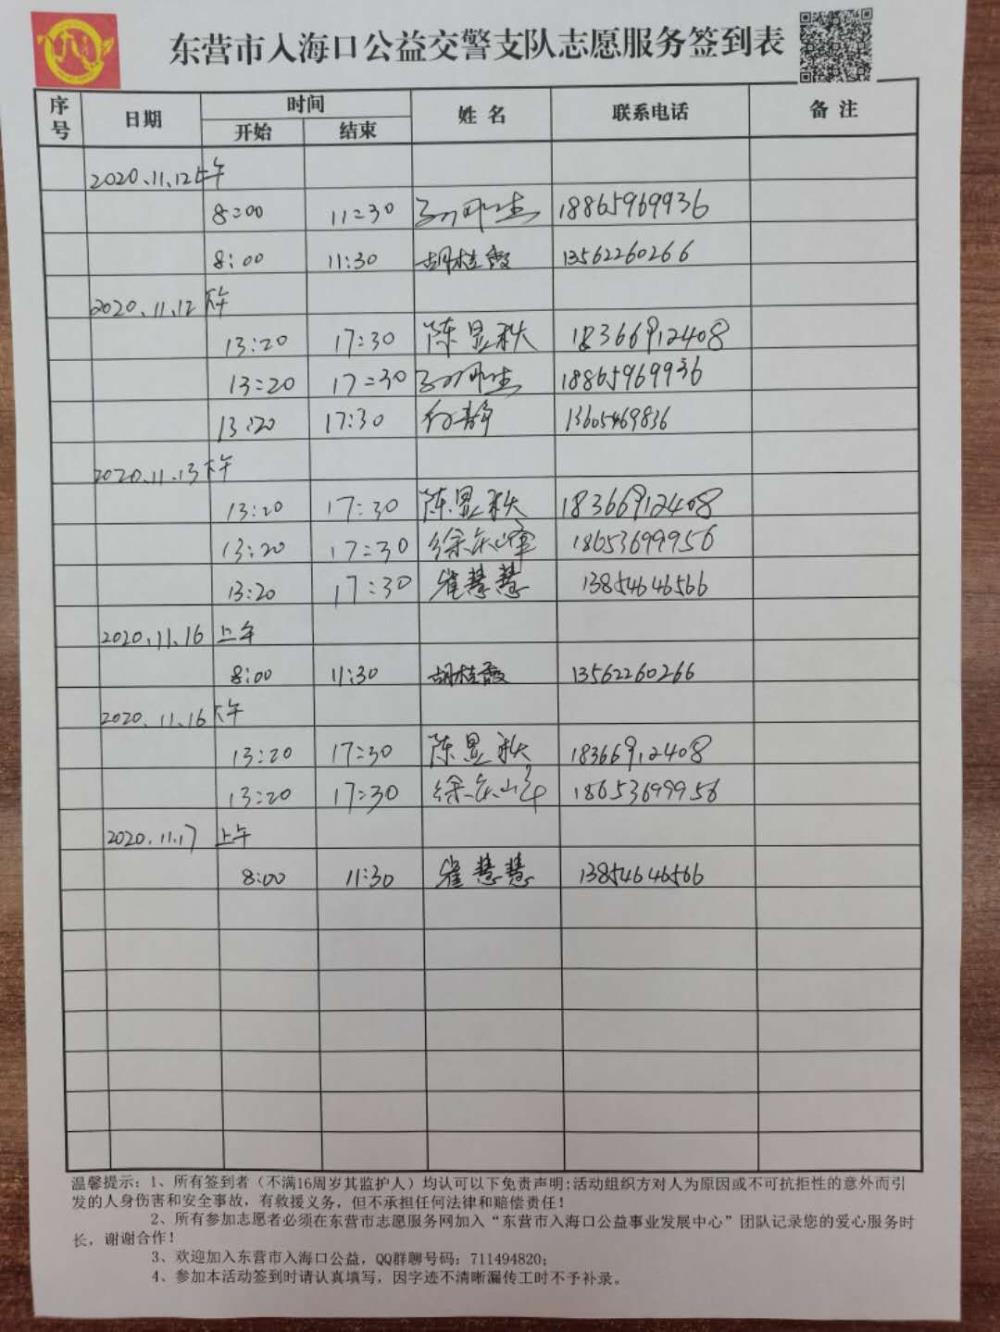 东营市入海口公益交警支队志愿服务签到表
序号 日期 时间 姓名 联系电话 备注
开始 结束
2020.11.12 上午
8:00 11:30 18865969936
8:00 11:30 胡桂霞 13562260266
2020.11.12 下午
13:20 17:30 陈显秋 18366912408
13:20 17:30 18865969936
13:20 17:30 何静 13605469836
2020.11.13 下午
13:20 17:30 陈显秋 18366912408
13:20 17:30 徐乐峰 18653699956
13:20 17:30 崔慧慧 13854646566
2020.11.16 上午
8:00 11:30 胡桂霞 13562260266
2020.11.16 下午
13:20 17:30 陈显秋 18366912408
13:20 17:30 18653699956
2020.11.17 上午
8:00 11:30 崔慧慧 13854646566
温馨提示：1、所有签到者（不满16周岁其监护人）均认可以下免责声明:活动组织方对人为原因或不可抗拒性的意外而引
发的人身伤害和安全事故，有救援义务，但不承担任何法律和赔偿责任！
2、所有参加志愿者必须在东营市志愿服务网加入“东营市入海口公益事业发展中心”团队记录您的爱心服务时
长，谢谢合作！
3、欢迎加入东营市入海口公益，QQ群聊号码：711494820;
4、参加本活动签到时请认真填写，因字迹不清晰漏传工时不予补录。